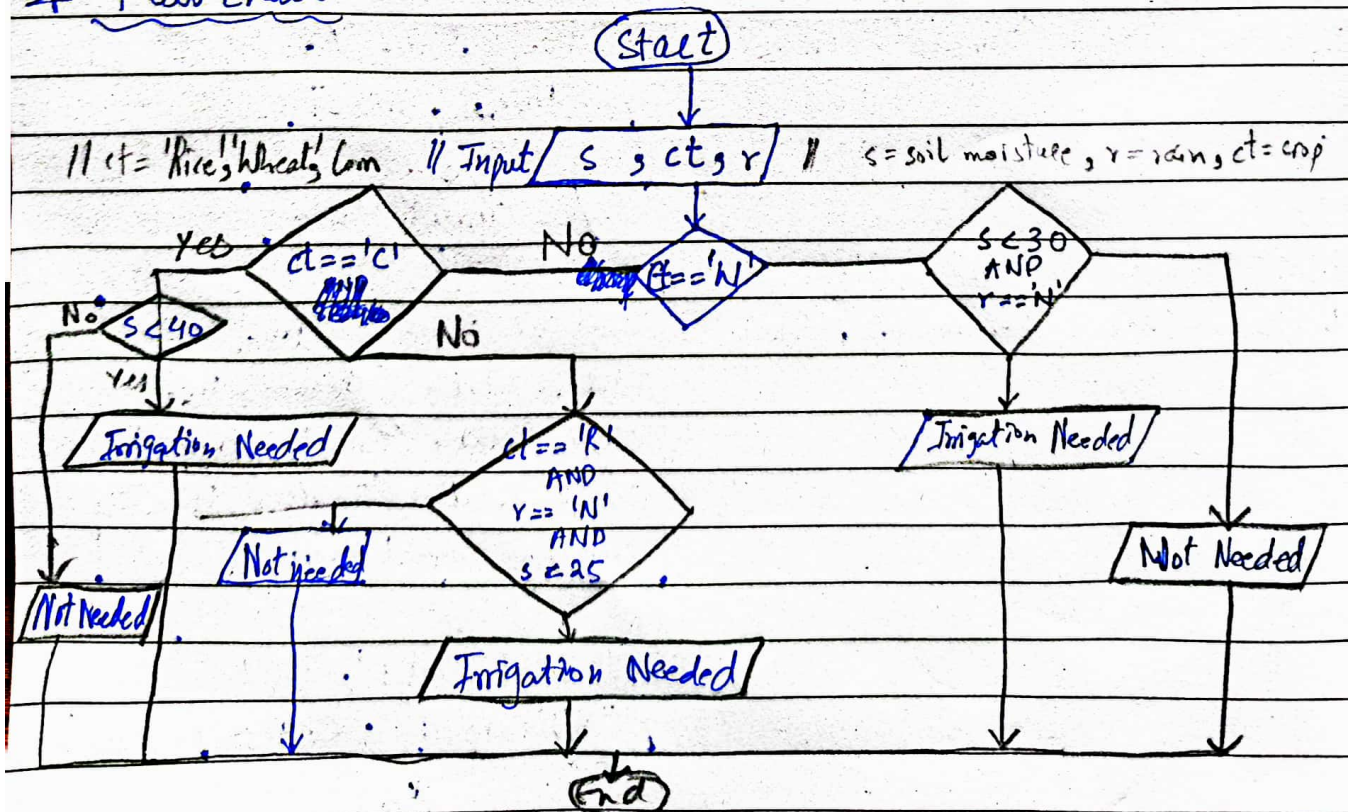 Flow Chart
Start
// ct = 'Rice', 'Wheat', Corn // Input s , ct , r // s = soil moisture, r = rain, ct = crop
Yes
ct == 'C'
No
ct == 'W'
s < 30
AND
r == 'N'
No
s < 40
No
Yes
Irrigation Needed
ct == 'R'
AND
r == 'N'
AND
s < 25
Irrigation Needed
Not needed
Not Needed
Not Needed
Irrigation Needed
End